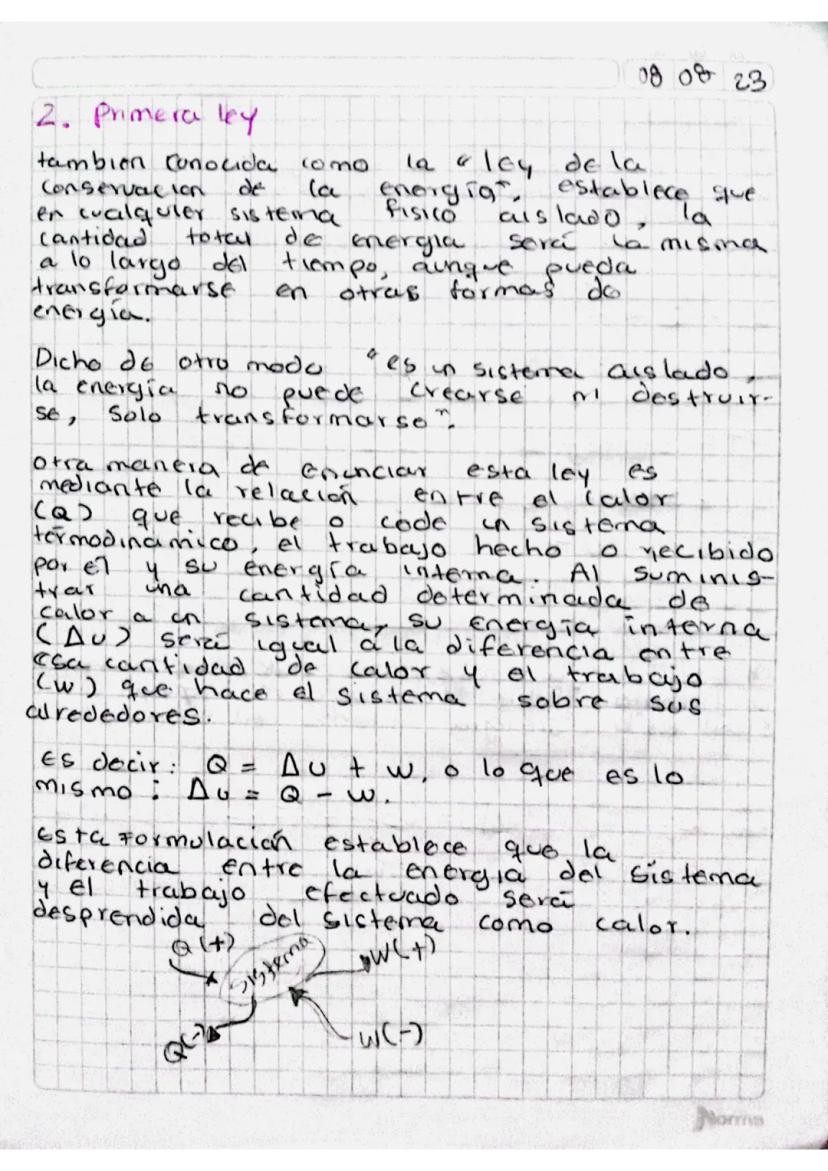 08 08 23
2. Primera ley
tambien conocida como la "ley de la
conservacion de la energía", establece que
en cualquier sistema físico aislado, la
cantidad total de energia será la misma
a lo largo del tiempo, aunque pueda
transformarse en otras formas de
energía.
Dicho de otro modo "es un sistema aislado,
la energía no puede crearse ni destruir-
se, Solo transformarse".
otra manera de enunciar esta ley es
mediante la relación entre el calor
(Q) que recibe o cede un sistema
termodinamico, el trabajo hecho o recibido
por él y su energía interna. Al suminis-
trar una cantidad determinada de
calor a un sistema, su energía interna
(ΔU) será igual a la diferencia entre
esa cantidad de calor y el trabajo
(W) que hace el sistema sobre sus
alrededores.
Es decir: Q = ΔU + W, o lo que es lo
mismo: ΔU = Q - W.
Esta Formulación establece que la
diferencia entre la energia del sistema
y el trabajo efectuado será
desprendida del sistema como calor.
Q(+) sistema W(+)
Q(-) W(-)
Norma